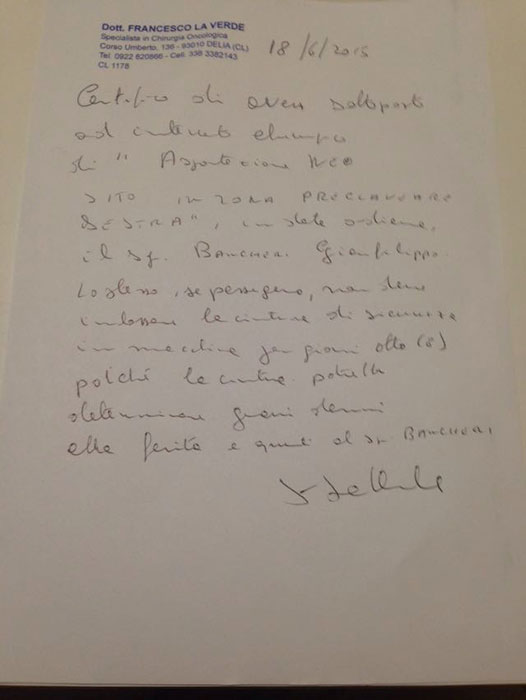 Dott. FRANCESCO LA VERDE
Specialista in Chirurgia Oncologica
Corso Umberto, 136 - 93010 DELIA (CL)
Tel. 0922 820866 - Cell. 338 3382143
CL 1178
18/6/2015
Certifico di aver sottoposto
ad intervento chirurgico
di " Asportazione neo
SITO IN ZONA PRECLAVEARE
DESTRA", in data odierna,
il sig. BANCHERI Gianfilippo.
Lo stesso, se passeggero, non deve
indossare la cintura di sicurezza
in macchina per giorni otto (8)
poiché la cintura potrebbe
determinare gravi danni
alla ferita e quindi al sig. BANCHERI